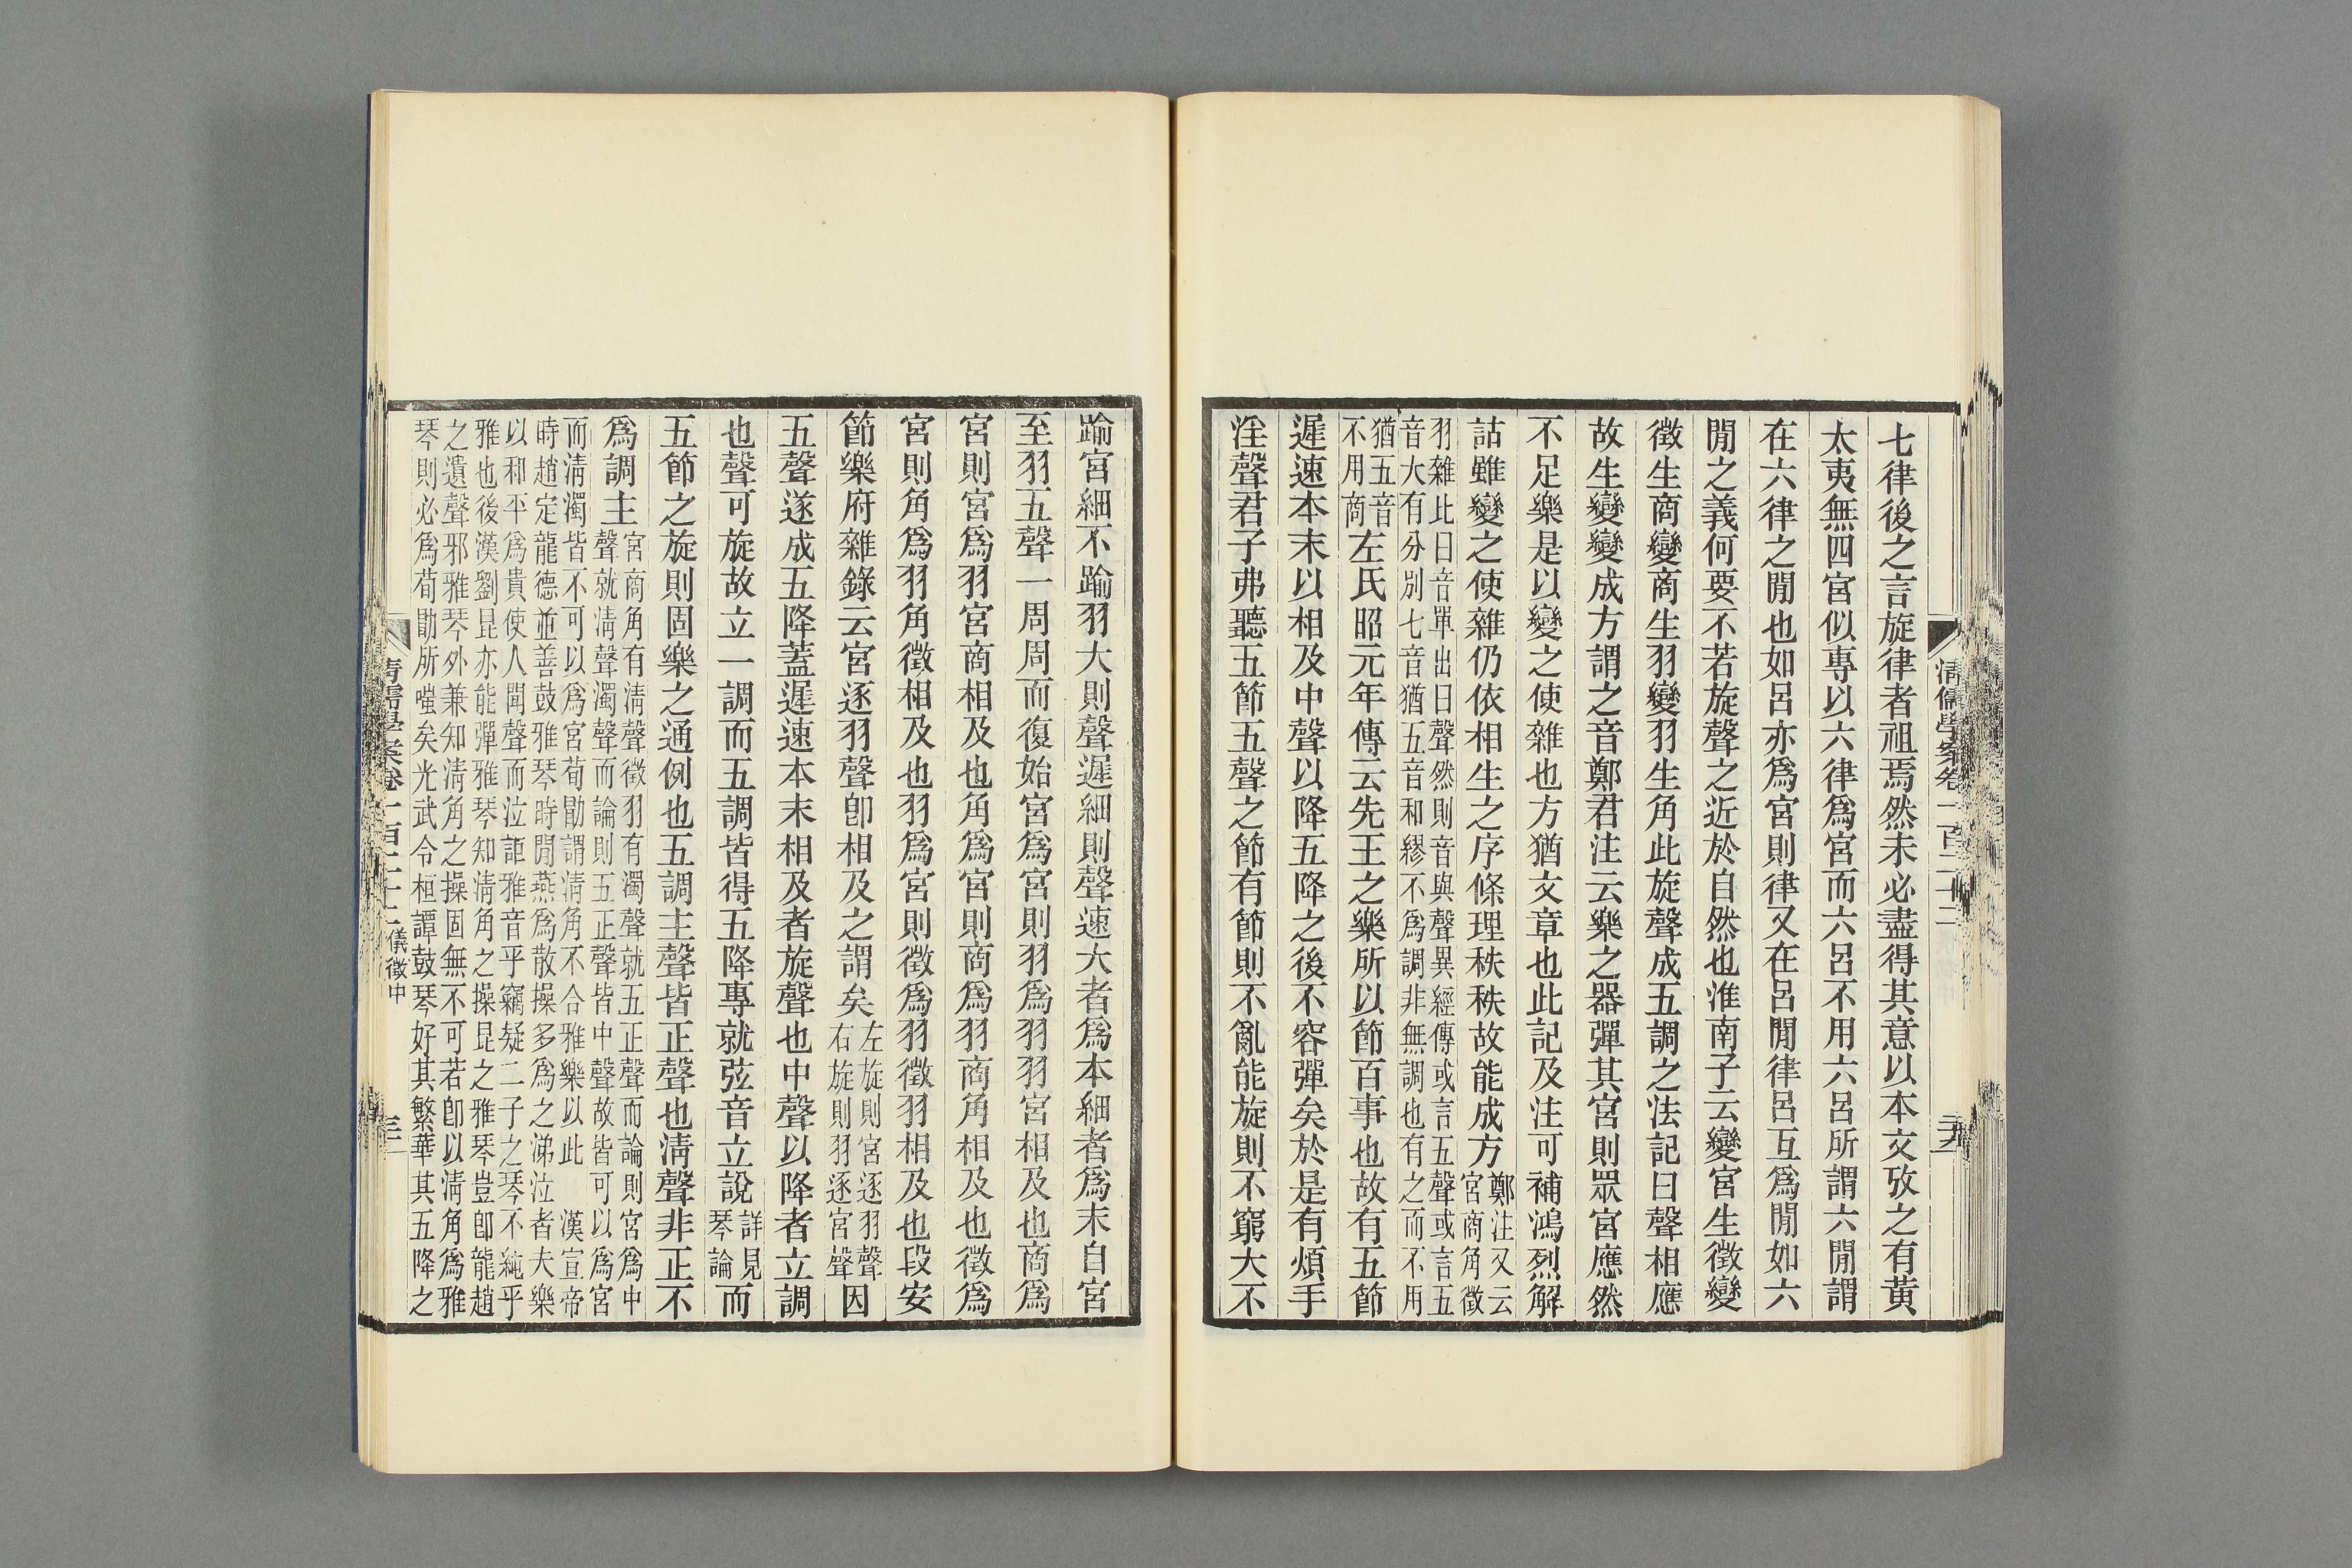 七律後之言旋律者祖焉然未必盡得其意以本文攷之有黃
太夷無四宮似專以六律爲宮而六呂不用六呂所謂六閒謂
在六律之閒也如呂亦爲宮則律又在呂閒律呂互爲閒如六
閒之義何要不若旋聲之近於自然也淮南子云變宮生徵變
徵生商變商生羽變羽生角此旋聲成五調之法記曰聲相應
故生變變成方謂之音鄭君注云樂之器彈其宮則眾宮應然
不足樂是以變之使雜也方猶文章也此記及注可補鴻烈解
詁雖變之使雜仍依相生之序條理秩秩故能成方鄭注又云宮商角徵
羽雜比曰音單出曰聲然則音與聲異經傳或言五聲或言五
音大有分別七音猶五音和繆不爲調非無調也有之而不用
猶五音不用商左氏昭元年傳云先王之樂所以節百事也故有五節
遲速本末以相及中聲以降五降之後不容彈矣於是有煩手
淫聲君子弗聽五節五聲之節有節則不亂能旋則不窮大不
清儒學案卷一百二十二
二九
踰宮細不踰羽大則聲遲細則聲速大者爲本細者爲末自宮
至羽五聲一周周而復始宮爲宮則羽爲羽羽宮相及也商爲
宮則宮爲羽宮商相及也角爲宮則商爲羽商角相及也徵爲
宮則角爲羽角徵相及也羽爲宮則徵爲羽徵羽相及也段安
節樂府雜錄云宮逐羽聲卽相及之謂矣左旋則宮逐羽聲右旋則羽逐宮聲因
五聲遂成五降蓋遲速本末相及者旋聲也中聲以降者立調
也聲可旋故立一調而五調皆得五降專就弦音立說詳見琴論而
五節之旋則固樂之通例也五調主聲皆正聲也淸聲非正不
爲調主宮商角有淸聲徵羽有濁聲就五正聲而論則宮爲中
聲就淸聲濁聲而論則五正聲皆中聲故皆可以爲宮
而淸濁皆不可以爲宮荀勖謂淸角不合雅樂以此　漢宣帝
時趙定龍德並善鼓雅琴時閒燕爲散操多爲之涕泣者夫樂
以和平爲貴使人聞聲而泣詎雅音乎竊疑二子之琴不純乎
雅也後漢劉昆亦能彈雅琴知淸角之操昆之雅琴豈卽龍趙
之遺聲邪雅琴外兼知淸角之操固無不可若卽以淸角爲雅
琴則必爲荀勖所嗤矣光武令桓譚鼓琴好其繁華其五降之
清儒學案卷一百二十二儀徵中
三